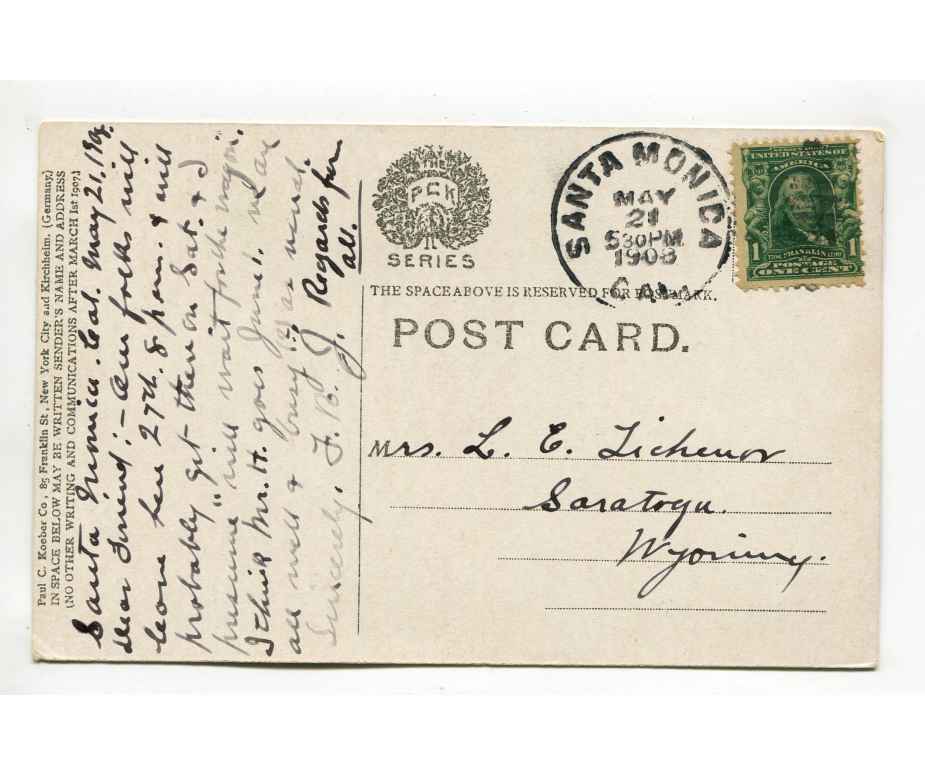 Paul C. Koeber Co., 85 Franklin St., New York City and Kirchheim, (Germany.)
IN SPACE BELOW MAY BE WRITTEN SENDER'S NAME AND ADDRESS
(NO OTHER WRITING AND COMMUNICATIONS AFTER MARCH 1st 1907.)
Santa Monica. Cal. May 21,
Dear Friend:- Our folks will
leave here 27th. 8 p.m. & will
probably "git there" on Sat. & I
presume will wait for the wagon.
I think Mr. H. goes June 1. We are
all well & busy as usual.
Sincerely, F.
Regards from
all.
THE
PCK
SERIES
SANTA MONICA
MAY
21
530PM
1908
CAL.
UNITED STATES OF
AMERICA
1 1
FRANKLIN
POSTAGE
ONE CENT
THE SPACE ABOVE IS RESERVED FOR POSTMARK.
POST CARD.
Mrs. L. E. Tichenor
Saratoga.
Wyoming.